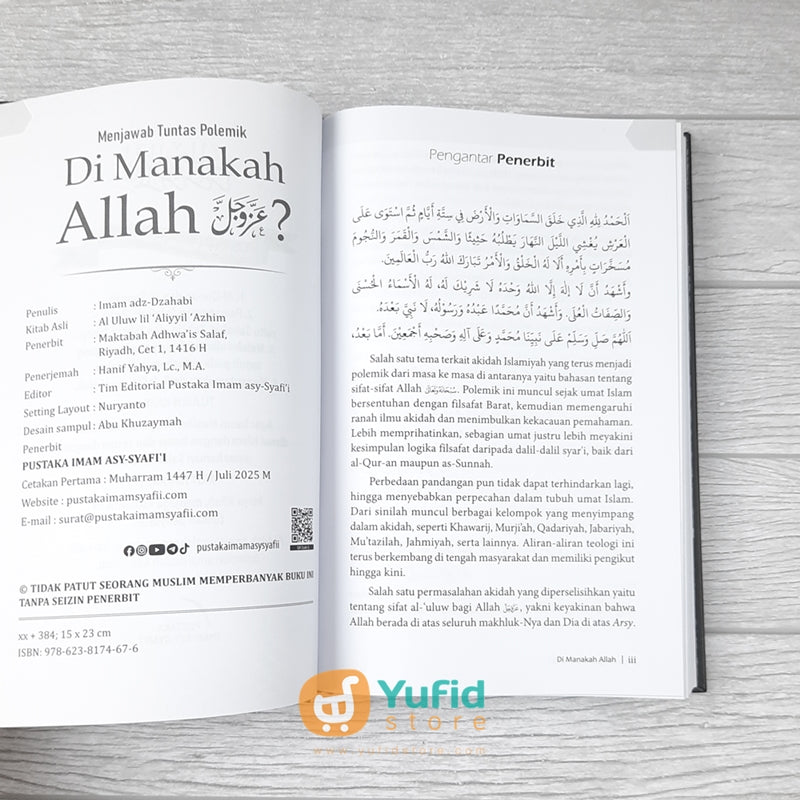 Menjawab Tuntas Polemik
Di Manakah
Allah عَزَّوَجَلَّ ?
Penulis : Imam adz-Dzahabi
Kitab Asli : Al Uluw lil 'Aliyyil 'Azhim
Penerbit : Maktabah Adhwa'is Salaf,
Riyadh, Cet 1, 1416 H
Penerjemah : Hanif Yahya, Lc., M.A.
Editor : Tim Editorial Pustaka Imam asy-Syafi'i
Setting Layout : Nuryanto
Desain sampul : Abu Khuzaymah
Penerbit
PUSTAKA IMAM ASY-SYAFI'I
Cetakan Pertama : Muharram 1447 H / Juli 2025 M
Website : pustakaimamsyafii.com
E-mail : surat@pustakaimamsyafii.com
pustakaimamasysyafii
© TIDAK PATUT SEORANG MUSLIM MEMPERBANYAK BUKU INI
TANPA SEIZIN PENERBIT
xx + 384; 15 x 23 cm
ISBN: 978-623-8174-67-6
Pengantar Penerbit
اَلْحَمْدُ لِلَّهِ الَّذِي خَلَقَ السَّمَاوَاتِ وَالْأَرْضَ فِي سِتَّةِ أَيَّامٍ ثُمَّ اسْتَوَى عَلَى
الْعَرْشِ يُغْشِي اللَّيْلَ النَّهَارَ يَطْلُبُهُ حَثِيثًا وَالشَّمْسَ وَالْقَمَرَ وَالنُّجُومَ
مُسَخَّرَاتٍ بِأَمْرِهِ أَلَا لَهُ الْخَلْقُ وَالْأَمْرُ تَبَارَكَ اللهُ رَبُّ الْعَالَمِينَ.
وأَشْهَدُ أَنْ لَا إِلٰهَ إِلَّا اللهُ وَحْدَهُ لَا شَرِيكَ لَهُ، لَهُ الْأَسْمَاءُ الْحُسْنَى
وَالصِّفَاتُ الْعُلَى. وَأَشْهَدُ أَنَّ مُحَمَّدًا عَبْدُهُ وَرَسُوْلُهُ، لَا نَبِيَّ بَعْدَهُ.
اَللّٰهُمَّ صَلِّ وَسَلِّمْ عَلَى نَبِيِّنَا مُحَمَّدٍ وَعَلَى آلِهِ وَصَحْبِهِ أَجْمَعِيْنَ. أَمَّا بَعْدُ،
Salah satu tema terkait akidah Islamiyah yang terus menjadi
polemik dari masa ke masa di antaranya yaitu bahasan tentang
sifat-sifat Allah سُبْحَانَهُ وَتَعَالَى. Polemik ini muncul sejak umat Islam
bersentuhan dengan filsafat Barat, kemudian memengaruhi
ranah ilmu akidah dan menimbulkan kekacauan pemahaman.
Lebih memprihatinkan, sebagian umat justru lebih meyakini
kesimpulan logika filsafat daripada dalil-dalil syar'i, baik dari
al-Qur'an maupun as-Sunnah.
Perbedaan pandangan pun tidak dapat terhindarkan lagi,
hingga menyebabkan perpecahan dalam tubuh umat Islam.
Dari sinilah muncul berbagai kelompok yang menyimpang
dalam akidah, seperti Khawarij, Murji'ah, Qadariyah, Jabariyah,
Mu'tazilah, Jahmiyah, serta lainnya. Aliran-aliran teologi ini
terus berkembang di tengah masyarakat dan memiliki pengikut
hingga kini.
Salah satu permasalahan akidah yang diperselisihkan yaitu
tentang sifat al-'uluw bagi Allah عَزَّوَجَلَّ, yakni keyakinan bahwa
Allah berada di atas seluruh makhluk-Nya dan Dia di atas Arsy.
Di Manakah Allah | iii
Yufid
store
www.yufidstore.com